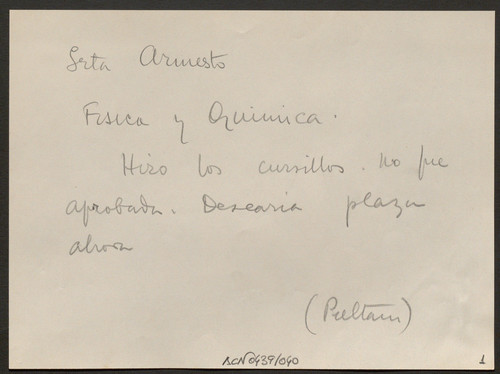 Srta Armesto
Fisica y Quimica.
Hizo los cursillos. no fue
aprobada. Desearia plaza
ahora
(Peltain)
BCN0439/040
1